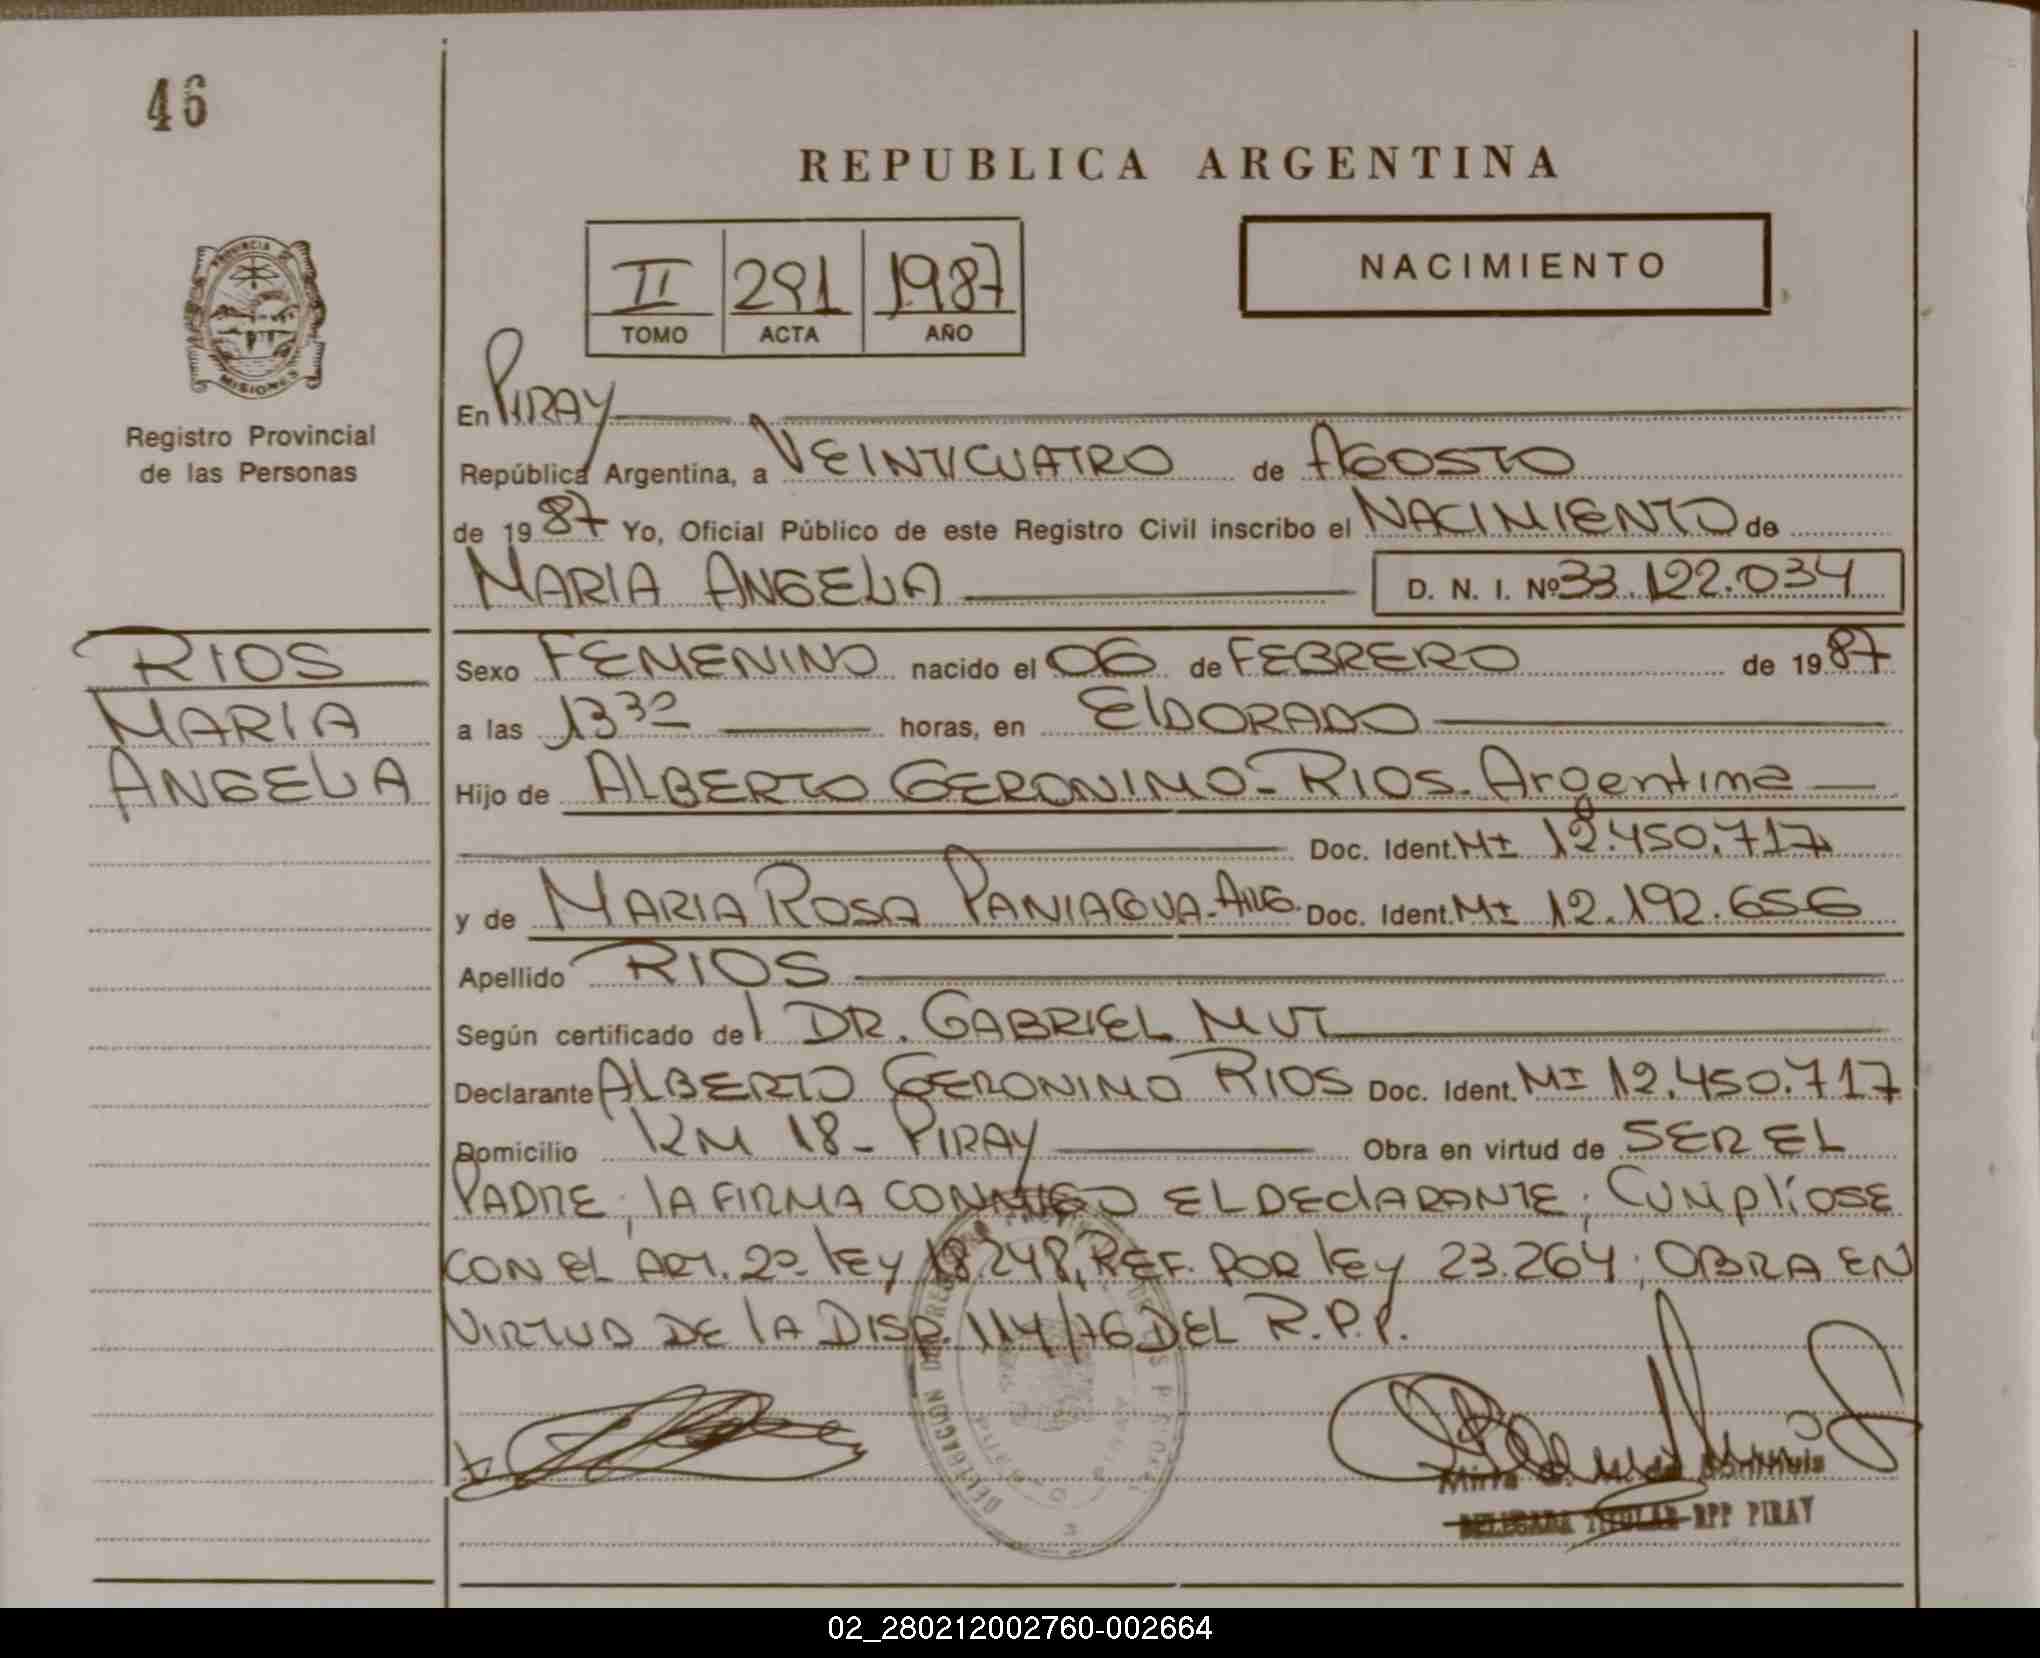 46
REPUBLICA ARGENTINA
II 291 1987
TOMO ACTA AÑO
NACIMIENTO
PROVINCIA DE
MISIONES
Registro Provincial
de las Personas
En PIRAY
República Argentina, a VEINTICUATRO de AGOSTO
de 1987 Yo, Oficial Público de este Registro Civil inscribo el NACIMIENTO de
MARIA ANGELA D. N. I. Nº 33.122.034
RIOS
MARIA
ANGELA
Sexo FEMENINO nacido el 06 de FEBRERO de 1987
a las 13 30 horas, en ELDORADO
Hijo de ALBERTO GERONIMO - RIOS - Argentina
Doc. Ident. MI 12.450.717
y de MARIA ROSA PANIAGUA - ARG. Doc. Ident. MI 12.192.656
Apellido RIOS
Según certificado del DR. GABRIEL MUT
Declarante ALBERTO GERONIMO RIOS Doc. Ident. MI 12.450.717
Domicilio KM 18 - PIRAY Obra en virtud de SER EL
PADRE; LA FIRMA CONMIGO EL DEClARANTE; CUMPLíOSE
CON EL ART. 2º lEy 18.248, REF. POR lEy 23.264; OBRA EN
VIRTUD DE lA DISP. 114/76 DEL R.P.P.
DELEGACION DEL REG
Mirta
DELEGADA TITULAR RPP PIRAY
02_280212002760-002664